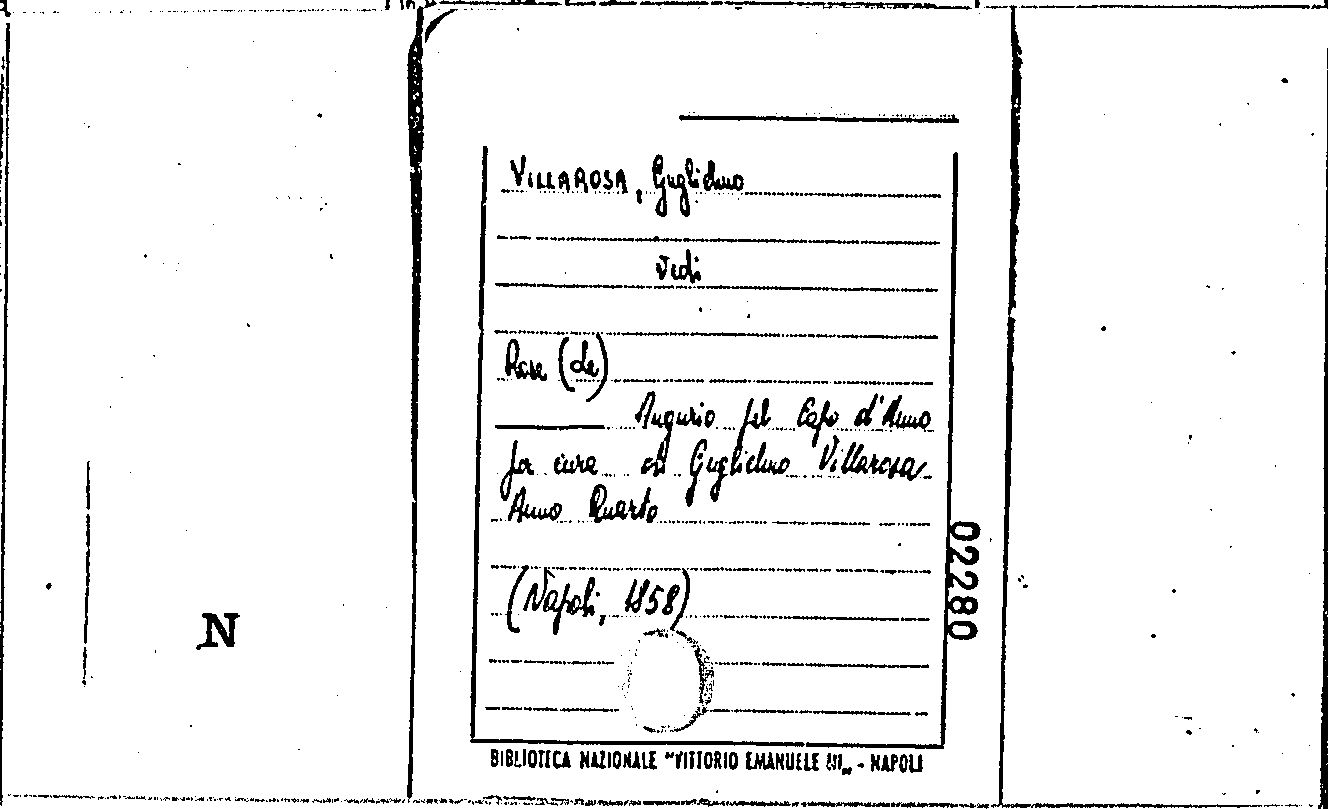 VILLAROSA, Guglielmo
Vedi
Rose (Le)
Augurio pel Capo d'Anno
per cura di Guglielmo Villarosa
Anno Quarto
(Napoli, 1858)
02280
N
BIBLIOTECA NAZIONALE "VITTORIO EMANUELE III„ - NAPOLI